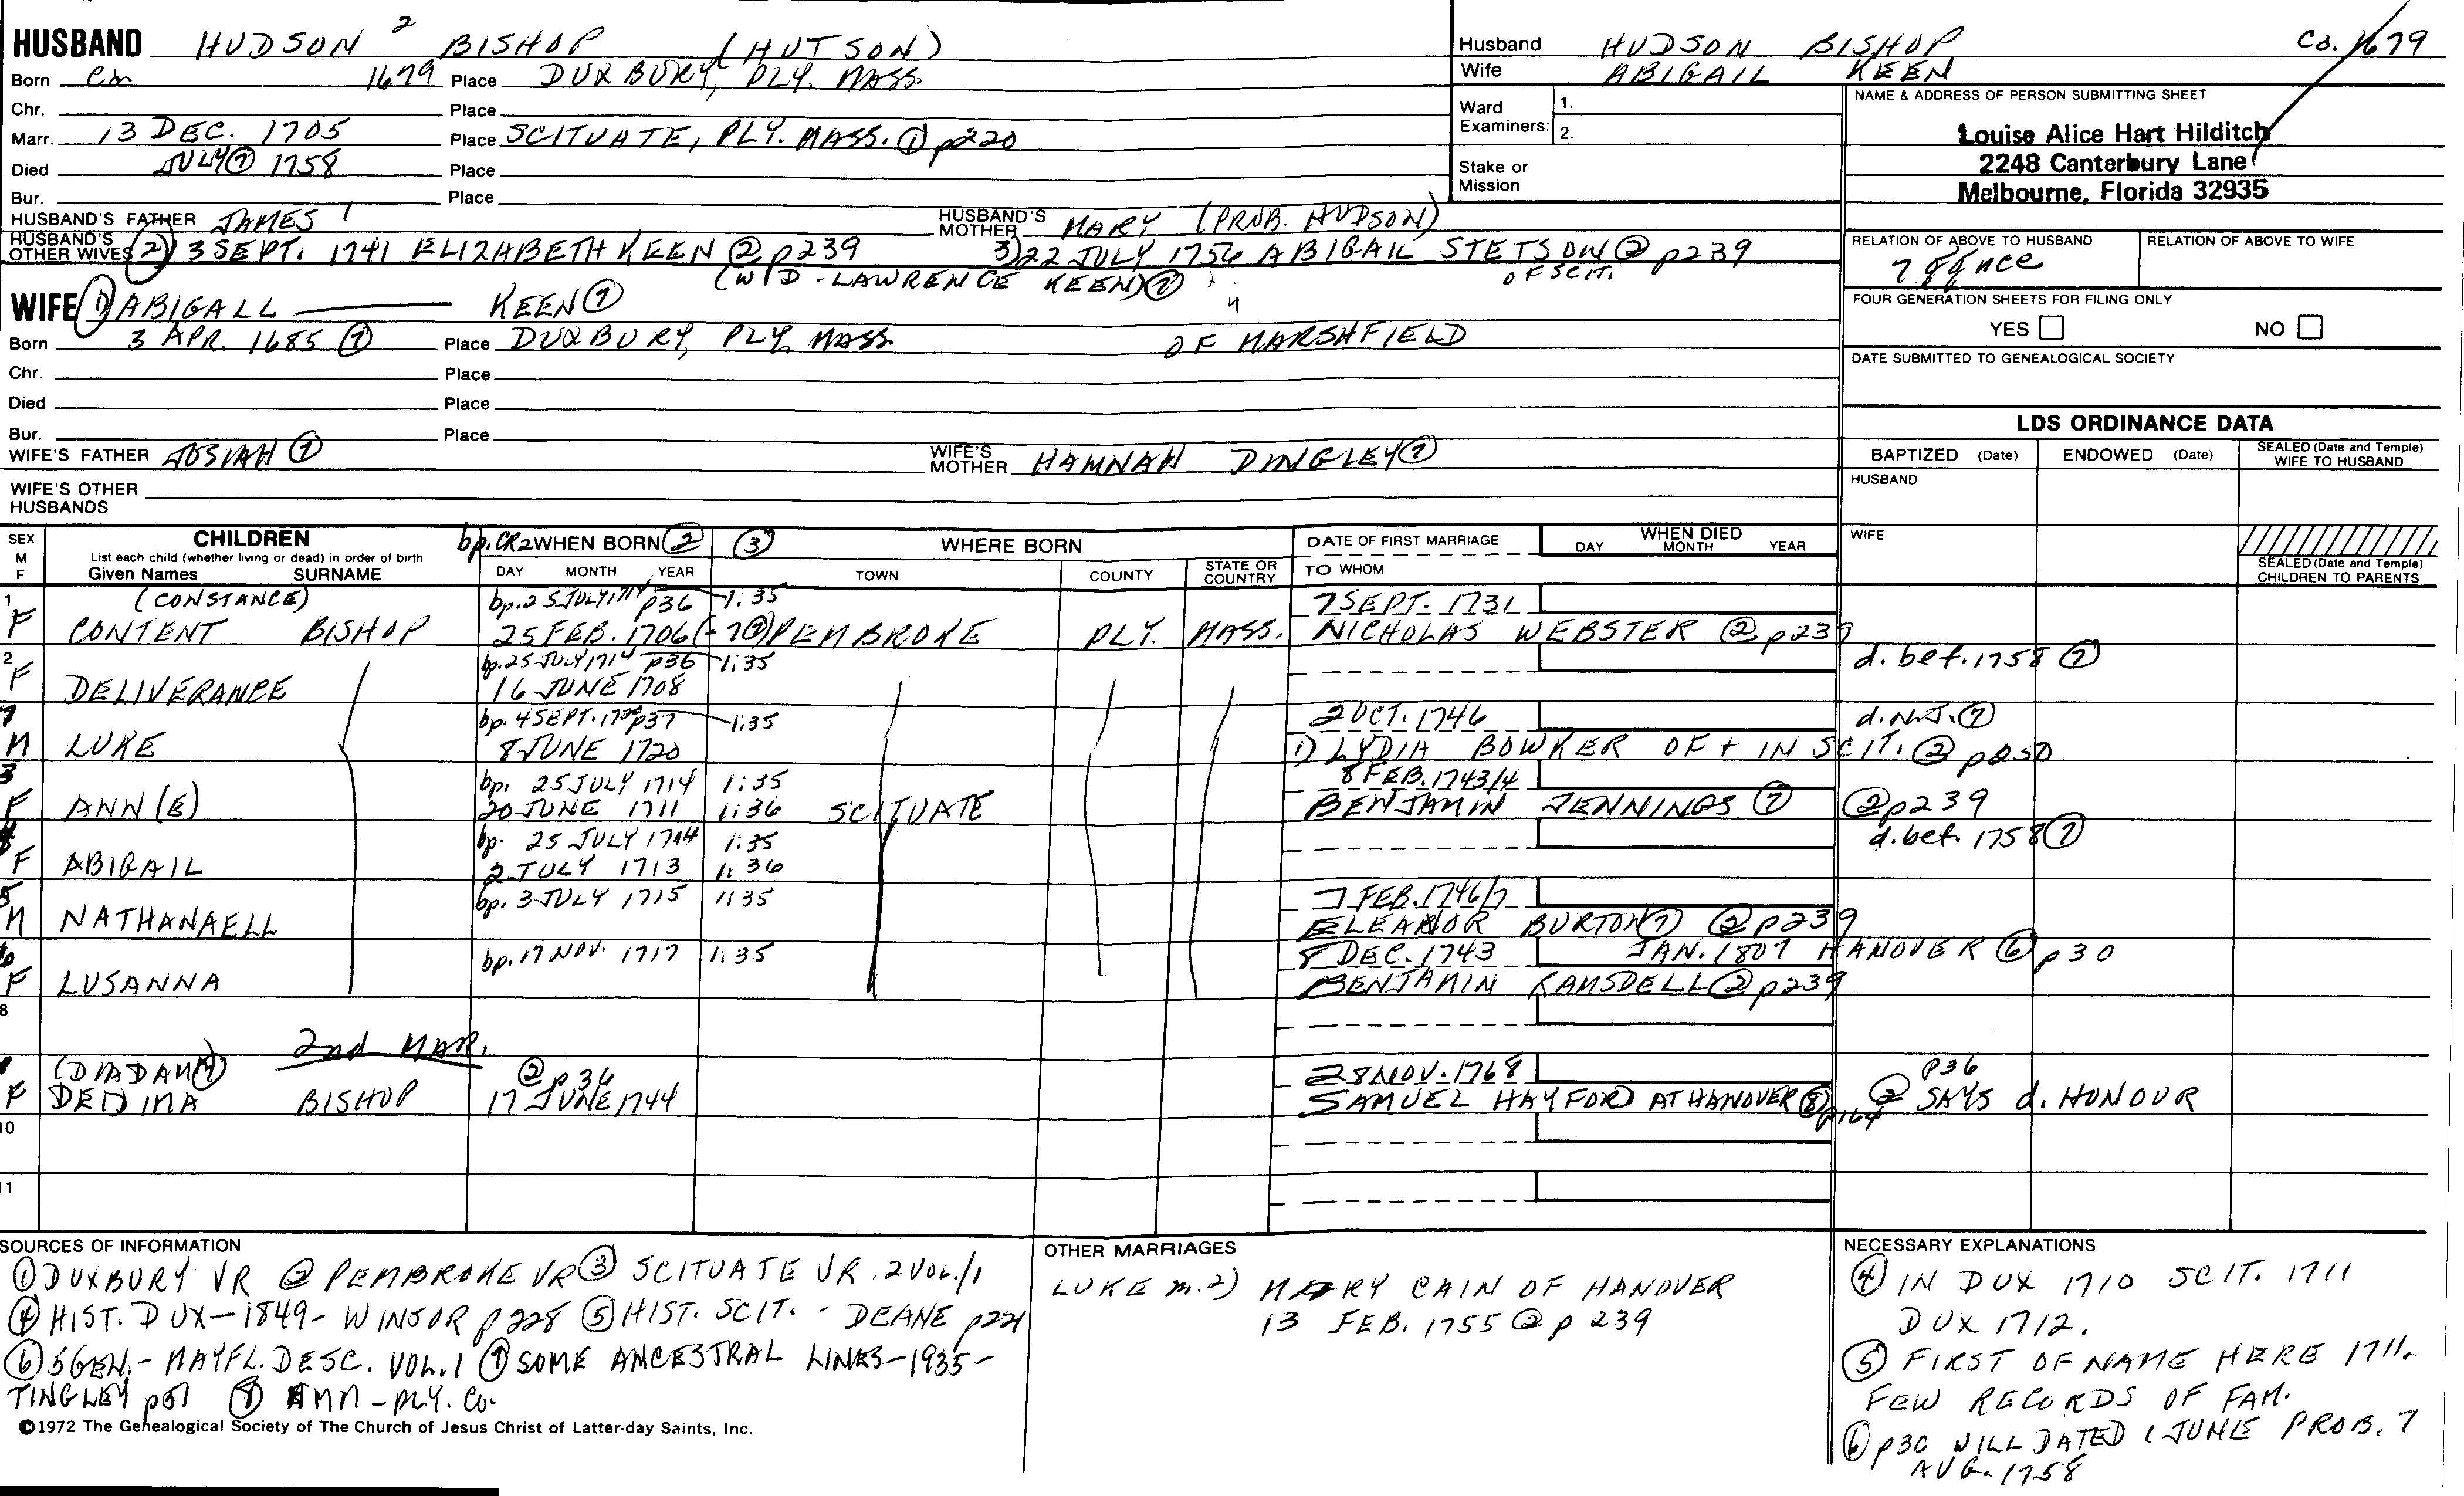 HUSBAND HUDSON 2 BISHOP (HUTSON)
Born Ca 1679 Place DUXBURY, PLY. MASS.
Chr. Place
Marr. 13 DEC. 1705 Place SCITUATE, PLY. MASS. ① p220
Died JULY ⑦ 1758 Place
Bur. Place
HUSBAND'S FATHER JAMES 1 HUSBAND'S MOTHER MARY (PROB. HUDSON)
HUSBAND'S OTHER WIVES 2) 3 SEPT. 1741 ELIZABETH KEEN ② p239 3) 22 JULY 1756 ABIGAIL STETSON ② p239
(WID - LAWRENCE KEEN) ⑦ OF SCIT.
WIFE 1) ABIGALL KEEN ⑦ 4
Born 3 APR. 1685 ⑦ Place DUXBURY, PLY. MASS. OF MARSHFIELD
Chr. Place
Died Place
Bur. Place
WIFE'S FATHER JOSIAH ⑦ WIFE'S MOTHER HANNAH DINGLEY ⑦
WIFE'S OTHER HUSBANDS
Husband HUDSON BISHOP Ca. 1679
Wife ABIGAIL KEEN
Ward Examiners: 1.
2.
Stake or Mission
NAME & ADDRESS OF PERSON SUBMITTING SHEET
Louise Alice Hart Hilditch
2248 Canterbury Lane
Melbourne, Florida 32935
RELATION OF ABOVE TO HUSBAND RELATION OF ABOVE TO WIFE
7 gg nce
FOUR GENERATION SHEETS FOR FILING ONLY
YES NO
DATE SUBMITTED TO GENEALOGICAL SOCIETY
LDS ORDINANCE DATA
BAPTIZED (Date) ENDOWED (Date) SEALED (Date and Temple) WIFE TO HUSBAND
HUSBAND
WIFE
SEALED (Date and Temple) CHILDREN TO PARENTS
SEX M F CHILDREN bp. CR2 WHEN BORN ② ③ WHERE BORN DATE OF FIRST MARRIAGE WHEN DIED
List each child (whether living or dead) in order of birth
Given Names SURNAME DAY MONTH YEAR TOWN COUNTY STATE OR COUNTRY TO WHOM DAY MONTH YEAR
1 (CONSTANCE) bp. 25 JULY 1714 p36 1:35 7 SEPT. 1731
F CONTENT BISHOP 25 FEB. 1706 (-7②) PEMBROKE PLY. MASS. NICHOLAS WEBSTER ② p239
2 bp. 25 JULY 1714 p36 1:35 d. bef. 1758 ⑦
F DELIVERANCE 16 JUNE 1708
7 bp. 4 SEPT. 1720 p37 1:35 2 OCT. 1746 d. N.J. ⑦
M LUKE 8 JUNE 1720 1) LYDIA BOWKER OF + IN SCIT. ② p250
3 bp. 25 JULY 1714 1:35 8 FEB. 1743/4
F ANN(E) 20 JUNE 1711 1:36 SCITUATE BENJAMIN JENNINGS ⑦ ② p239
4 bp. 25 JULY 1714 1:35 d. bef. 1758 ⑦
F ABIGAIL 2 JULY 1713 1:36
5 bp. 3 JULY 1715 1:35 7 FEB. 1746/7
M NATHANAELL ELEANOR BURTON ⑦ ② p239
6 bp. 17 NOV. 1717 1:35 8 DEC. 1743 JAN. 1807 HANOVER ⑥ p30
F LUSANNA BENJAMIN RAMSDELL ② p239
8
2nd MAR.
(DIADAMA) ② p36 28 NOV. 1768 p36
F DEDIMA BISHOP 17 JUNE 1744 SAMUEL HAYFORD AT HANOVER ⑧ p164 ② SAYS d. HONOUR
10
11
SOURCES OF INFORMATION
① DUXBURY VR ② PEMBROKE VR ③ SCITUATE VR. 2 VOL./1
④ HIST. DUX-1849- WINSOR p228 ⑤ HIST. SCIT. - DEANE p221
⑥ 5 GEN. - MAYFL. DESC. VOL. 1 ⑦ SOME ANCESTRAL LINES-1935-
TINGLEY p51 ⑧ EMM - PLY. Co.
©1972 The Genealogical Society of The Church of Jesus Christ of Latter-day Saints, Inc.
OTHER MARRIAGES
LUKE m. 2) MARY CAIN OF HANOVER
13 FEB. 1755 ② p 239
NECESSARY EXPLANATIONS
④ IN DUX 1710 SCIT. 1711
DUX 1712.
⑤ FIRST OF NAME HERE 1711.
FEW RECORDS OF FAM.
⑥ p30 WILL DATED 1 JUNE PROB. 7
AUG. 1758